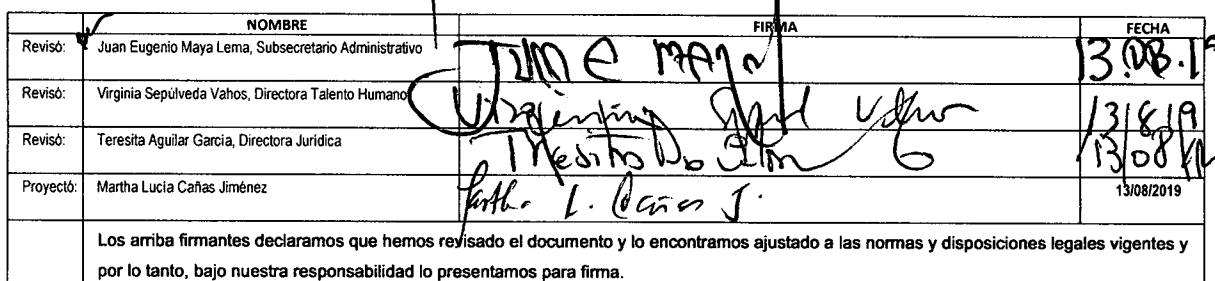 NOMBRE FIRMA FECHA
Revisó: Juan Eugenio Maya Lema, Subsecretario Administrativo 13.08.19
Revisó: Virginia Sepúlveda Vahos, Directora Talento Humano 13/8/19
Revisó: Teresita Aguilar García, Directora Jurídica 13/08/19
Proyectó: Martha Lucía Cañas Jiménez Martha L. Cañas J. 13/08/2019
Los arriba firmantes declaramos que hemos revisado el documento y lo encontramos ajustado a las normas y disposiciones legales vigentes y
por lo tanto, bajo nuestra responsabilidad lo presentamos para firma.